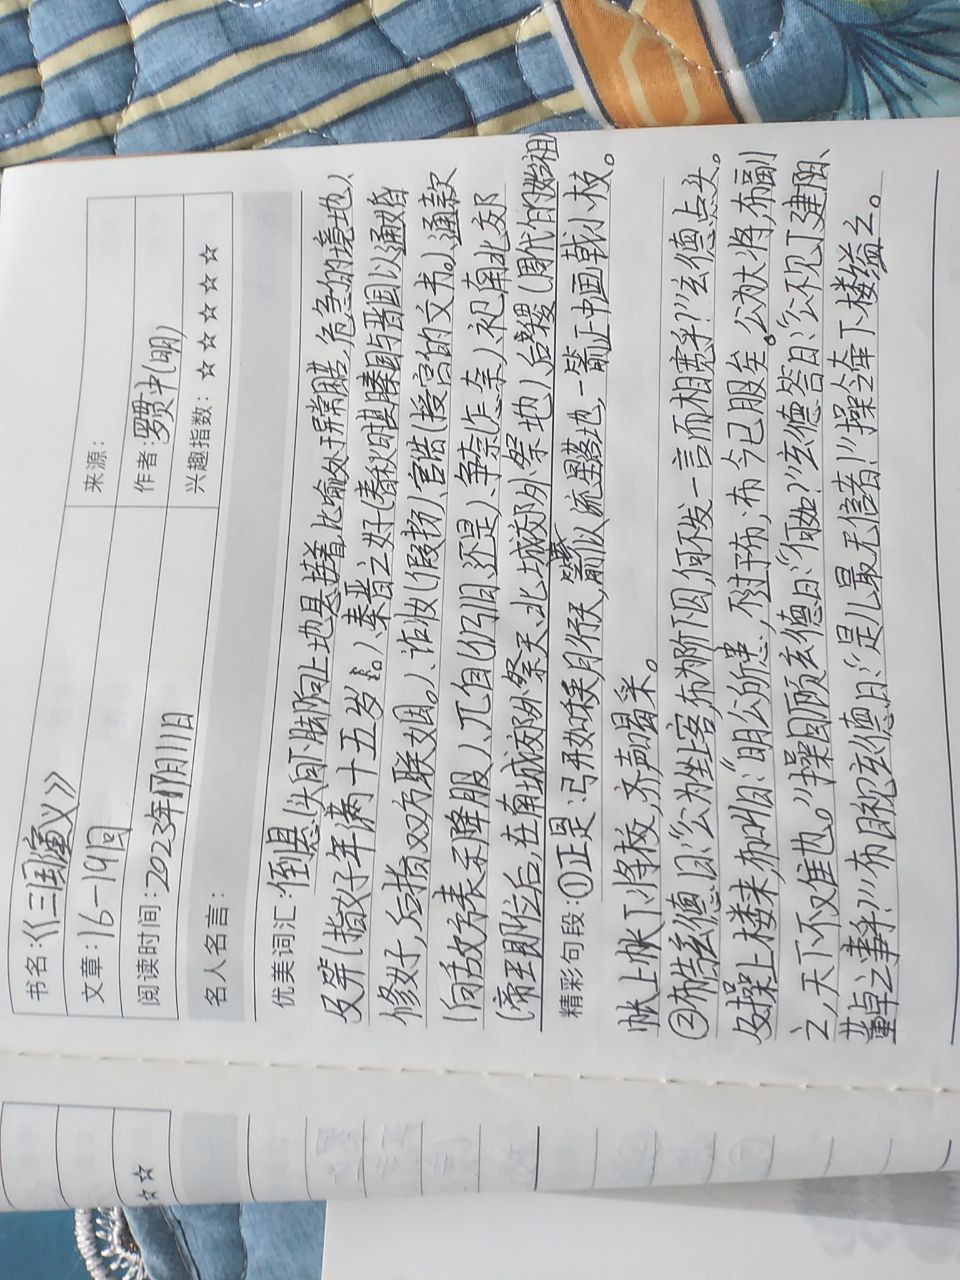 书名:《三国演义》 来源:
文章:16-19回 作者:罗贯中(明)
阅读时间:2023年1月11日 兴趣指数:☆☆☆☆☆
名人名言:
优美词汇:倒悬(头向下脚向上地悬挂着,比喻处于异常困难、危急的境地)、
及笄(指女子年满十五岁)、秦晋之好(春秋时期秦国与晋国以通婚
修好,后指双方联姻。)、诈妆(假扮)、官诰(授官的文书。)、通款
(向敌方表示降服)、兀自(仍旧还是)、争奈(怎奈)、祀南北郊
(帝王即位后,在南城郊外祭天、北城郊外祭地)、后稷(周代的始祖)
精彩句段:①正是:弓开如秋月行天,箭似流星落地,一箭正中画戟小枝。
帐上帐下将校,齐声喝采。
②布告玄德曰:“公为坐客,布为阶下囚,何不发一言而相宽乎?”玄德点头。
及操上楼来,布叫曰:“明公所患,不过于布,布今已服矣。公为大将,布副
之,天下不难也。”操回顾玄德曰:“何如?”玄德答曰:“公不见丁建阳、
董卓之事乎?”布目视玄德曰:“是儿最无信者!”操令牵下楼缢之。